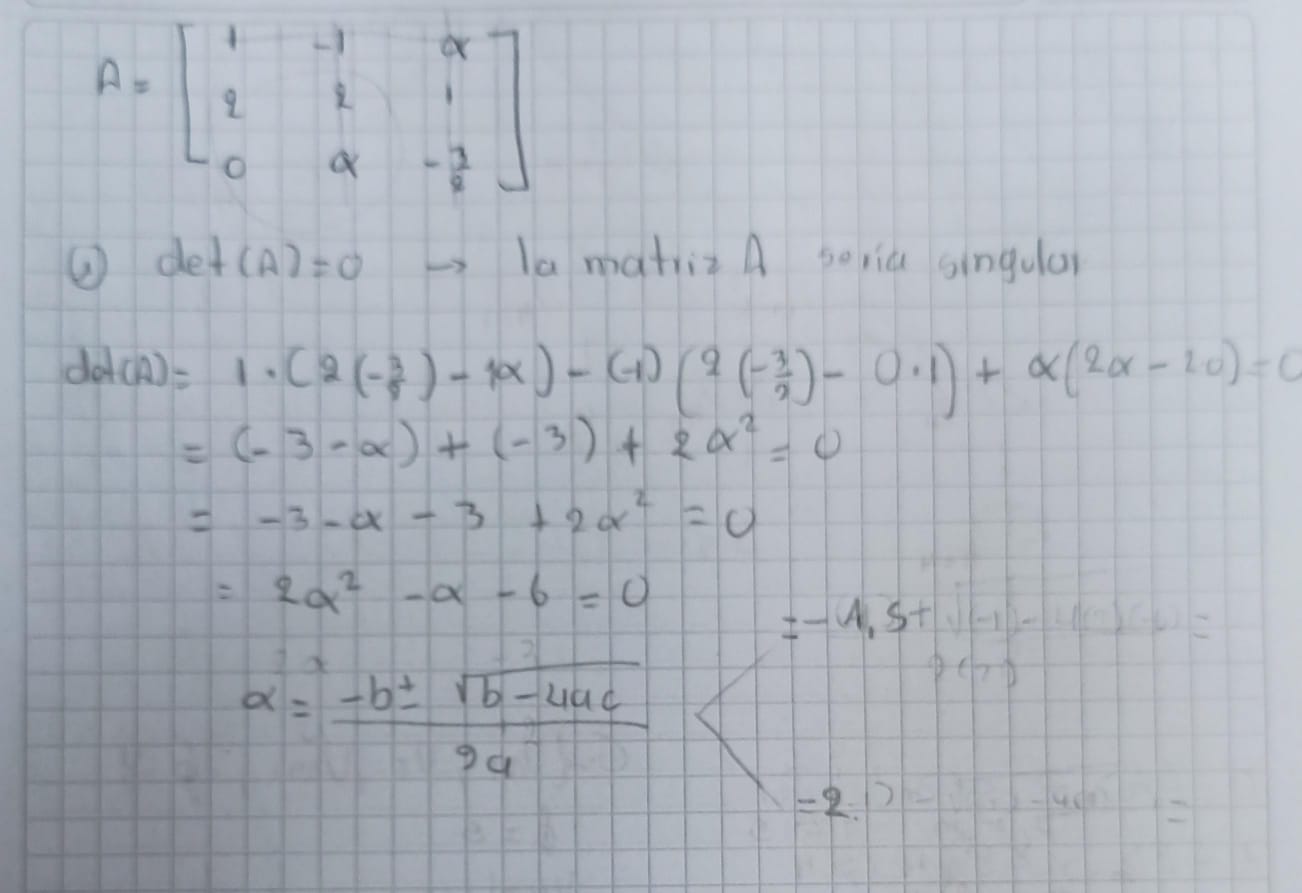 A = [ 1 -1 α
2 2 1
0 α -3/2 ]
a) det(A)=0 → la matriz A seria singular
det(A)= 1·(2(-3/2) - 1α) - (-1) (2(-3/2) - 0·1) + α(2α - 2·0) = 0
= (-3-α) + (-3) + 2α² = 0
= -3 - α - 3 + 2α² = 0
= 2α² - α - 6 = 0
α = (-b ± √b - 4ac) / 2a
= -1,5
= 2